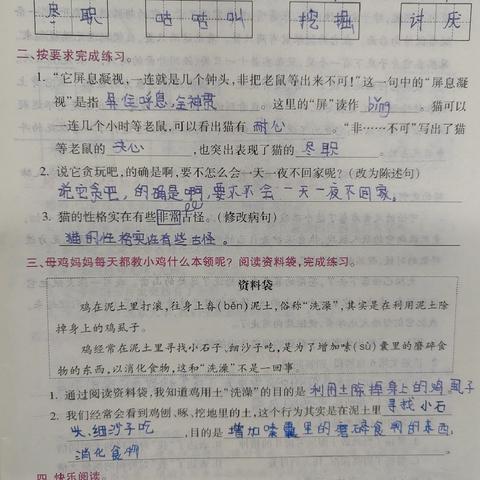 尽 职 咕 咕 叫 挖 掘 讨 厌
二、按要求完成练习。
1. “它屏息凝视,一连就是几个钟头,非把老鼠等出来不可!”这一句中的“屏息凝
视”是指 屏住呼息,全神贯 。这里的“屏”读作 bǐng 。猫可以
一连几个小时等老鼠,可以看出猫有 耐心 。“非……不可”写出了猫
等老鼠的 决心 ,也突出表现了猫的 尽职 。
2. 说它贪玩吧,的确是啊,要不怎么会一天一夜不回家呢?(改为陈述句)
说它贪吧,的确是啊,要不不会一天一夜不回家。
3. 猫的性格实在有些非常古怪。(修改病句)
猫的性格实在有些古怪。
三、母鸡妈妈每天都教小鸡什么本领呢?阅读资料袋,完成练习。
资料袋
鸡在泥土里打滚,往身上畚(běn)泥土,俗称“洗澡”,其实是在利用泥土除
掉身上的鸡虱子。
鸡经常在泥土里寻找小石子、细沙子吃,是为了增加嗉(sù)囊里的磨碎食
物的东西,以消化食物,这和“洗澡”不是一回事。
1. 通过阅读资料袋,我知道鸡用土“洗澡”的目的是 利用土除掉身上的鸡虱子
2. 我们经常会看到鸡刨、啄、挖地里的土,这个行为其实是在泥土里 寻找小石
头.细沙子吃 ,目的是 增加嗉囊里的磨碎食物的东西,
消化食物
四、快乐阅读。